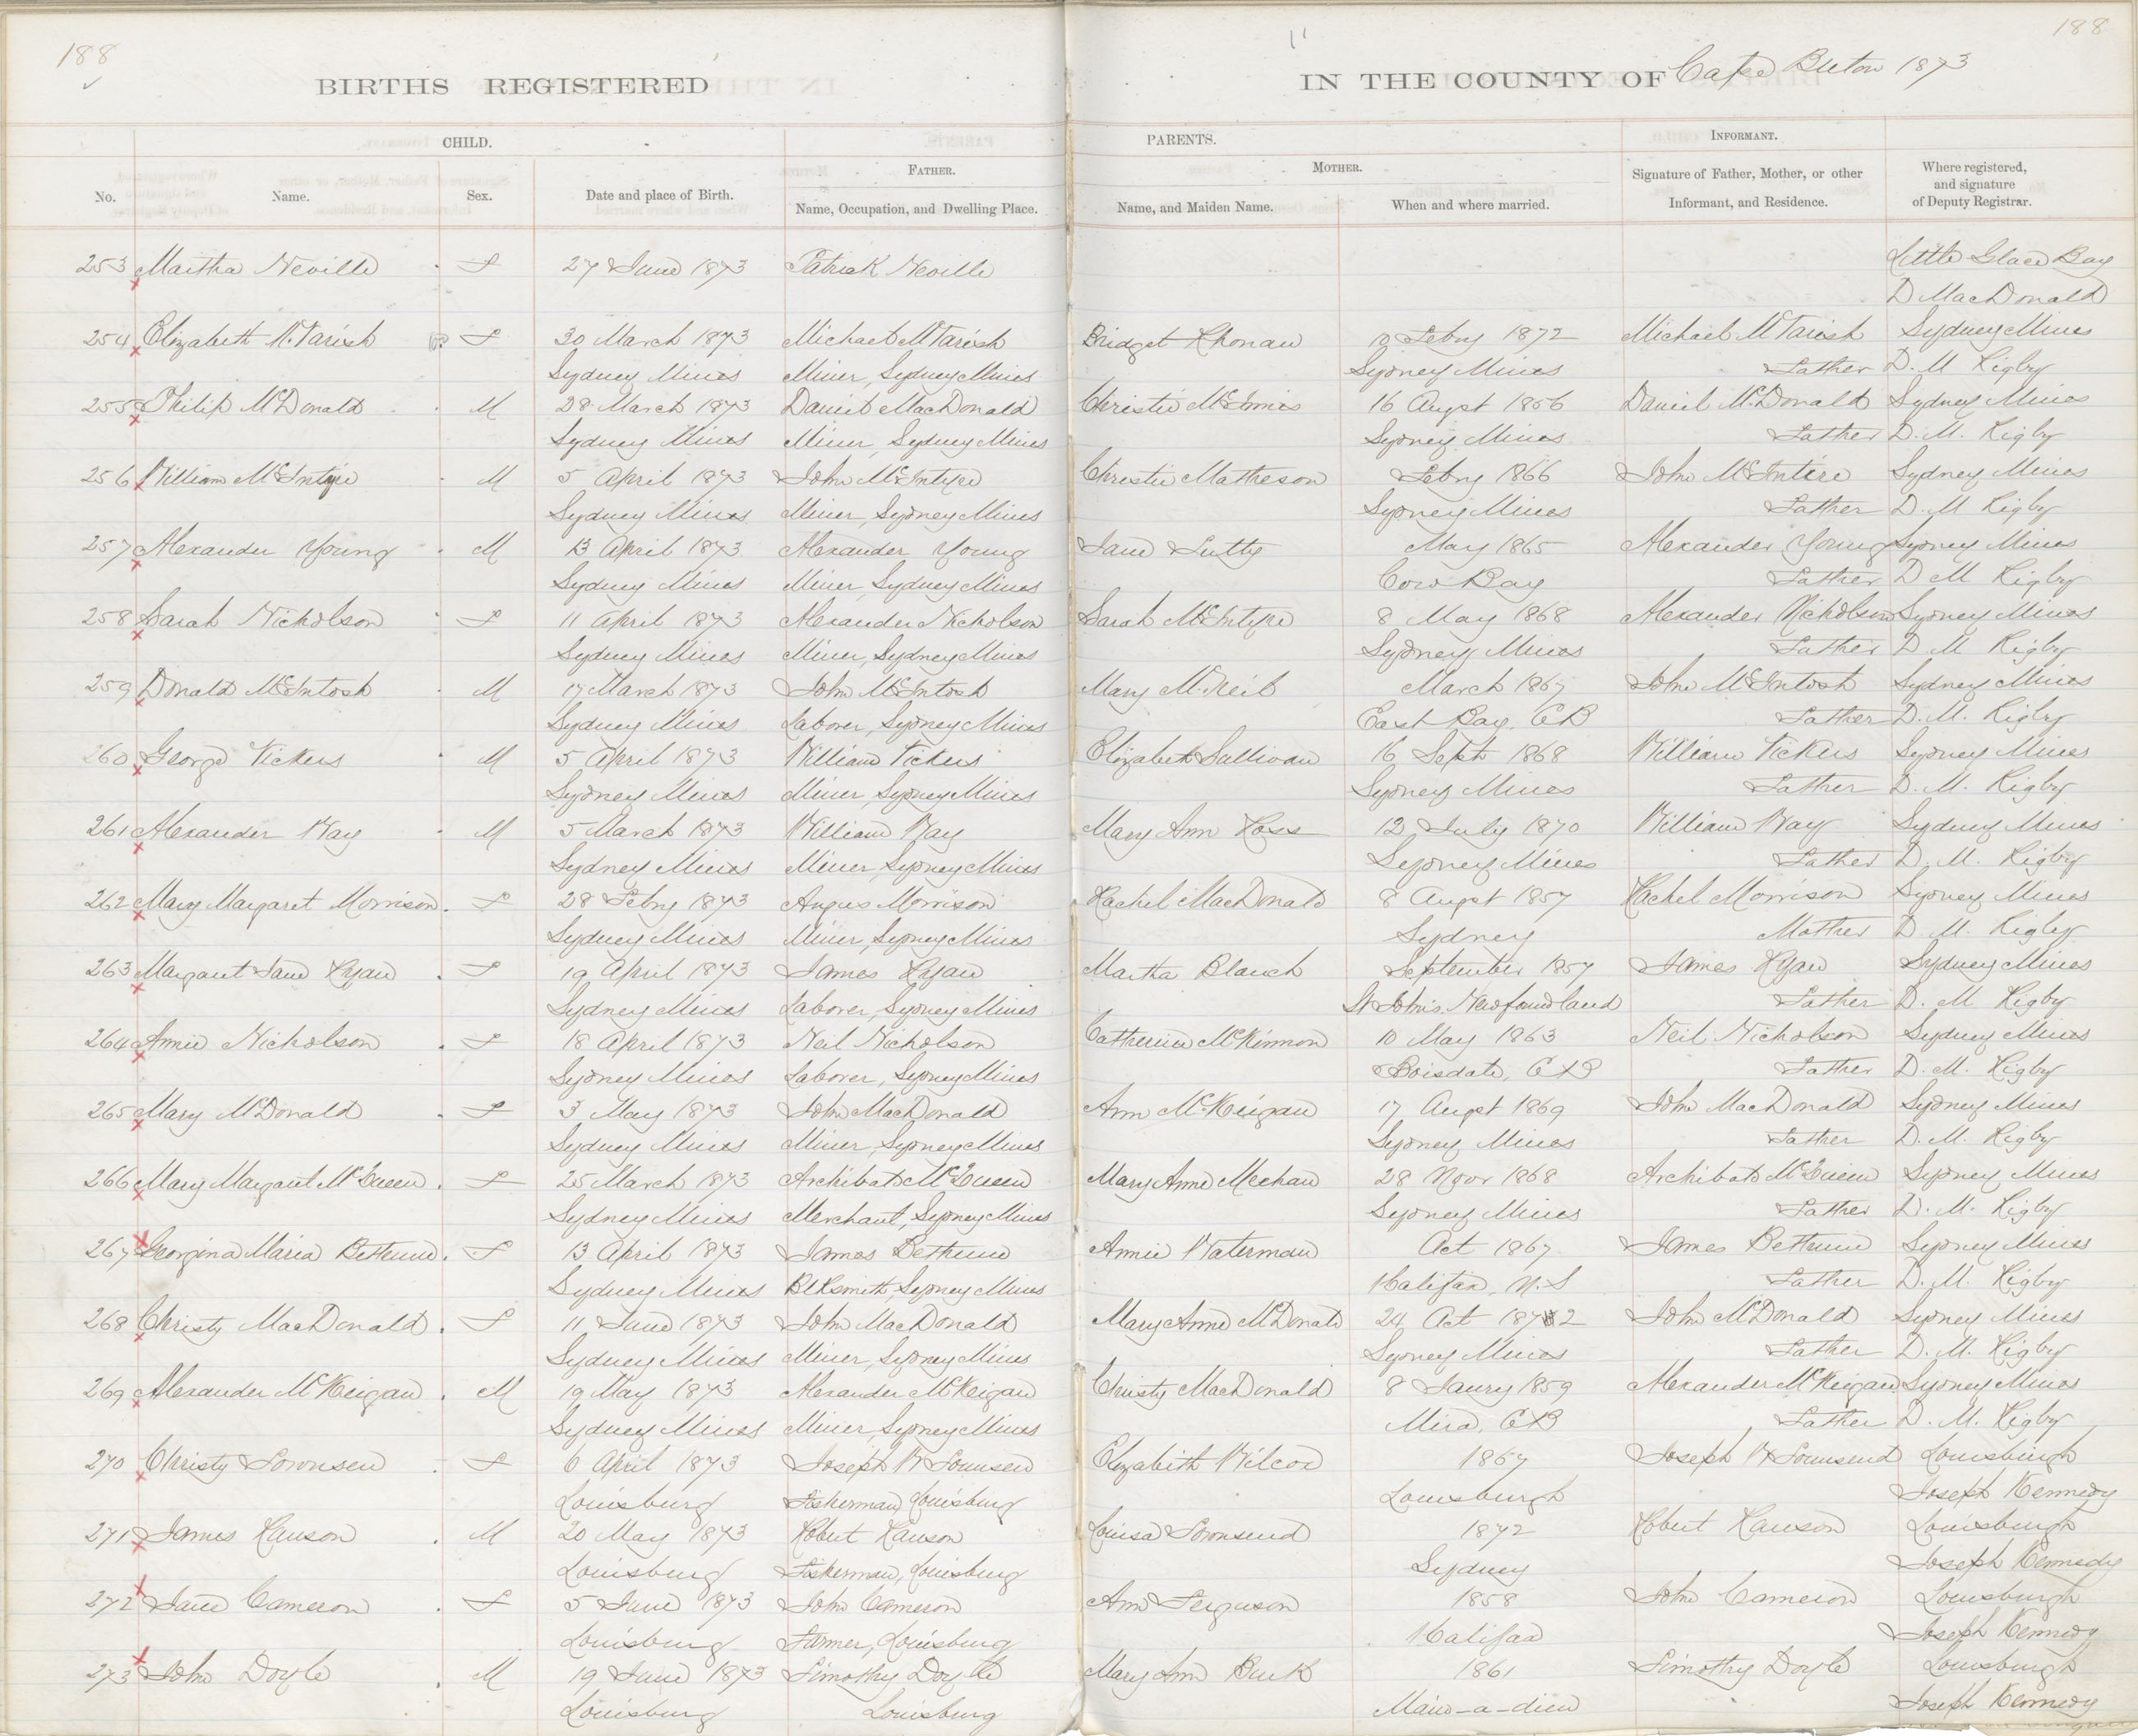 188
188
BIRTHS REGISTERED
IN THE COUNTY OF Cape Breton 1873
CHILD.
PARENTS.
INFORMANT.
No.
Name.
Sex.
Date and place of Birth.
FATHER.
Name, Occupation, and Dwelling Place.
MOTHER.
Name, and Maiden Name.
When and where married.
Signature of Father, Mother, or other
Informant, and Residence.
Where registered,
and signature
of Deputy Registrar.
253 Martha Neville F 27 June 1873 Patrick Neville Little Glace Bay
D MacDonald
254 Elizabeth McTarish F 30 March 1873 Michael McTarish Bridget 10 Febry 1872 Michael McTarish Sydney Mines
Sydney Mines Miner, Sydney Mines Sydney Mines Father D. M Rigby
255 Philip McDonald M 28 March 1873 Daniel MacDonald Christie McInnis 16 Augst 1856 Daniel McDonald Sydney Mines
Sydney Mines Miner, Sydney Mines Sydney Mines Father D. M. Rigby
256 William McIntyre M 5 April 1873 John McIntyre Christie Matheson Febry 1866 John McIntire Sydney Mines
Sydney Mines Miner, Sydney Mines Sydney Mines Father D. M Rigby
257 Alexander Young M 13 April 1873 Alexander Young Jane May 1865 Alexander Young Sydney Mines
Sydney Mines Miner, Sydney Mines Cow Bay Father D M Rigby
258 Sarah Nicholson F 11 April 1873 Alexander Nicholson Sarah McIntyre 8 May 1868 Alexander Nicholson Sydney Mines
Sydney Mines Miner, Sydney Mines Sydney Mines Father D M Rigby
259 Donald McIntosh M 17 March 1873 John McIntosh Mary McNeil March 1867 John McIntosh Sydney Mines
Sydney Mines Laborer, Sydney Mines East Bay, CB Father D. M. Rigby
260 George Vickers M 5 April 1873 William Vickers Elizabeth Sullivan 16 Sept 1868 William Vickers Sydney Mines
Sydney Mines Miner, Sydney Mines Sydney Mines Father D. M. Rigby
261 Alexander Way M 5 March 1873 William Way Mary Ann Ross 12 July 1870 William Way Sydney Mines
Sydney Mines Miner, Sydney Mines Sydney Mines Father D. M. Rigby
262 Mary Margaret Morrison F 28 Febry 1873 Angus Morrison Rachel MacDonald 8 Augst 1857 Rachel Morrison Sydney Mines
Sydney Mines Miner, Sydney Mines Sydney Mother D. M. Rigby
263 Margaret Jane Ryan F 19 April 1873 James Ryan Martha Blanch September 1857 James Ryan Sydney Mines
Sydney Mines Laborer, Sydney Mines St Johns Newfoundland Father D. M Rigby
264 Annie Nicholson F 18 April 1873 Neil Nicholson Catherine McKinnon 10 May 1863 Neil Nicholson Sydney Mines
Sydney Mines Laborer, Sydney Mines Boisdale, CB Father D. M. Rigby
265 Mary McDonald F 3 May 1873 John MacDonald Ann McKeigan 17 Augst 1869 John MacDonald Sydney Mines
Sydney Mines Miner, Sydney Mines Sydney Mines Father D. M. Rigby
266 Mary Margaret McQueen F 25 March 1873 Archibald McQueen Mary Anne Meehan 28 Novr 1868 Archibald McQueen Sydney Mines
Sydney Mines Merchant, Sydney Mines Sydney Mines Father D. M. Rigby
267 Georgina Maria Bethune F 13 April 1873 James Bethune Annie Waterman Oct 1867 James Bethune Sydney Mines
Sydney Mines Blksmith, Sydney Mines Halifax, N.S Father D. M. Rigby
268 Christy MacDonald F 11 June 1873 John MacDonald Mary Anne McDonald 24 Oct 1872 John McDonald Sydney Mines
Sydney Mines Miner, Sydney Mines Sydney Mines Father D. M. Rigby
269 Alexander McKeigan M 19 May 1873 Alexander McKeigan Christy MacDonald 8 Janry 1859 Alexander McKeigan Sydney Mines
Sydney Mines Miner, Sydney Mines Mira, CB Father D. M. Rigby
270 Christy Townsen F 6 April 1873 Joseph W Townsen Elizabeth Wilcox 1867 Joseph W Townsend Louisburgh
Louisburg Fisherman, Louisburg Louisburgh Joseph Kennedy
271 James Hanson M 20 May 1873 Robert Hanson Louisa Townsend 1872 Robert Hanson Louisburgh
Louisburg Fisherman, Louisburg Sydney Joseph Kennedy
272 Jane Cameron F 5 June 1873 John Cameron Ann Ferguson 1858 John Cameron Louisburgh
Louisburg Farmer, Louisburg Halifax Joseph Kennedy
273 John Doyle M 19 June 1873 Timothy Doyle Mary Ann Burk 1861 Timothy Doyle Louisburgh
Louisburg Louisburg Main-a-dieu Joseph Kennedy